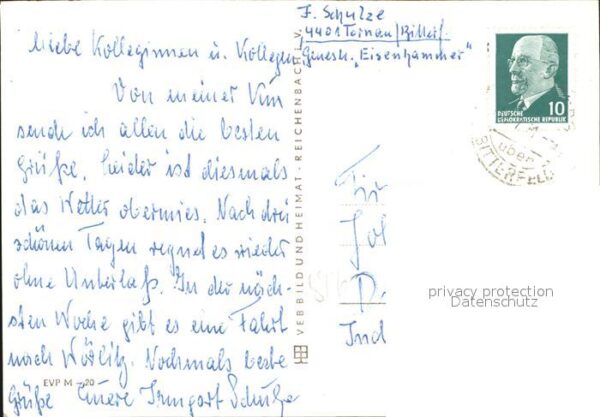 Liebe Kolleginnen u. Kollegen,
Von meiner Kur
sende ich allen die besten
Grüße. Leider ist diesmals
das Wetter obermies. Nach drei
schönen Tagen regnet es wieder
ohne Unterlaß. In der näch-
sten Woche gibt es eine Fahrt
nach Wörlitz. Nochmals beste
Grüße Eure Irmgart Schulze
EVP M -.20
VEB BILD UND HEIMAT · REICHENBACH I. V.
F. Schulze
4401 Tornau/Bitterf.
Genesh. „Eisenhammer"
10
DEUTSCHE
DEMOKRATISCHE REPUBLIK
über
BITTERFELD
privacy protection
Datenschutz